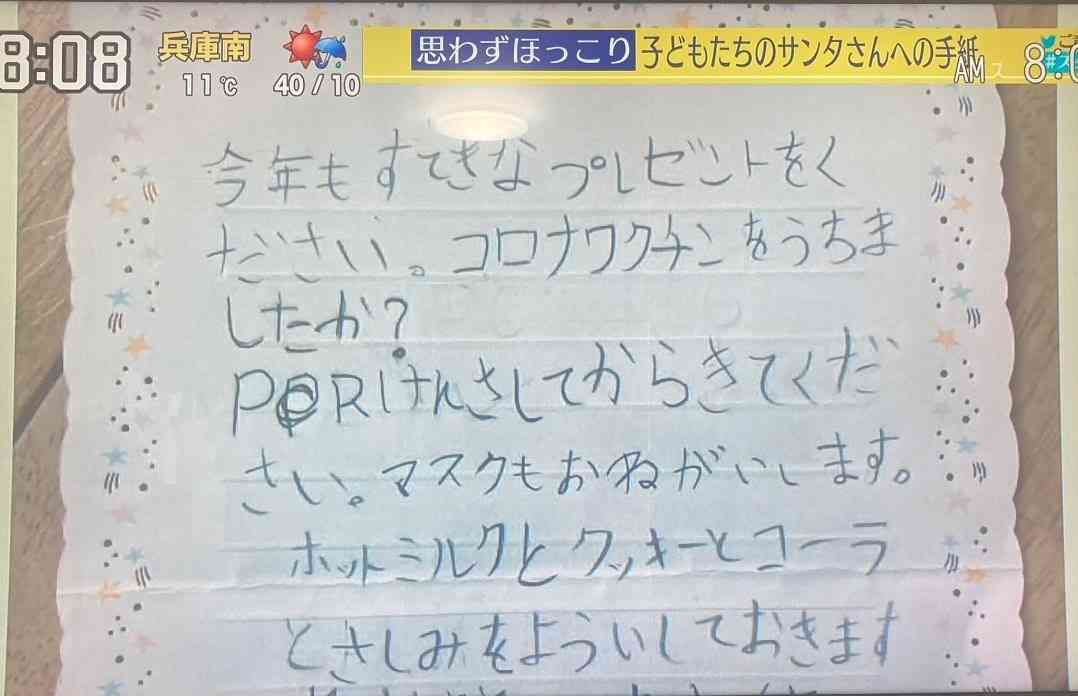 8:08
兵庫南
11℃ 40/10
思わずほっこり 子どもたちのサンタさんへの手紙
AM 8:0
今年もすてきなプレゼントをく
ださい。コロナワクチンをうちま
したか?
PCRけんさしてからきてくだ
さい。マスクもおねがいします。
ホットミルクとクッキーとコーラ
とさしみをよういしておきます